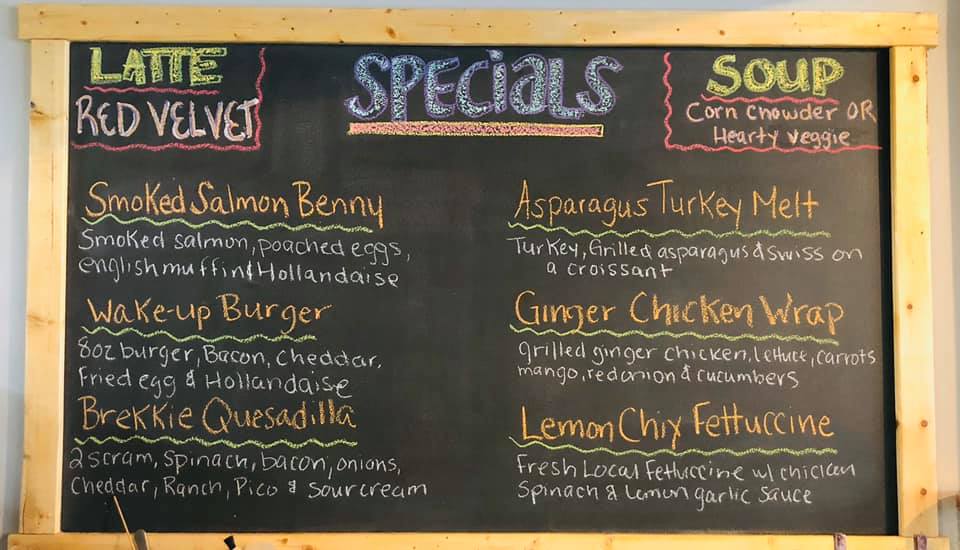 LATTE
RED VELVET
SPECiALS
SOUP
Corn Chowder OR
Hearty veggie
Smoked Salmon Benny
Smoked salmon, poached eggs,
english muffin & Hollandaise
Wake-up Burger
8oz burger, Bacon, cheddar,
Fried egg & Hollandaise
Brekkie Quesadilla
2 scram, spinach, bacon, onions,
Cheddar, Ranch, Pico & sour cream
Asparagus Turkey Melt
Turkey, Grilled asparagus & swiss on
a croissant
Ginger Chicken Wrap
grilled ginger chicken, lettuce, carrots
mango, red onion & cucumbers
Lemon Chix Fettuccine
Fresh Local Fettuccine w/ chicken
Spinach & Lemon garlic sauce